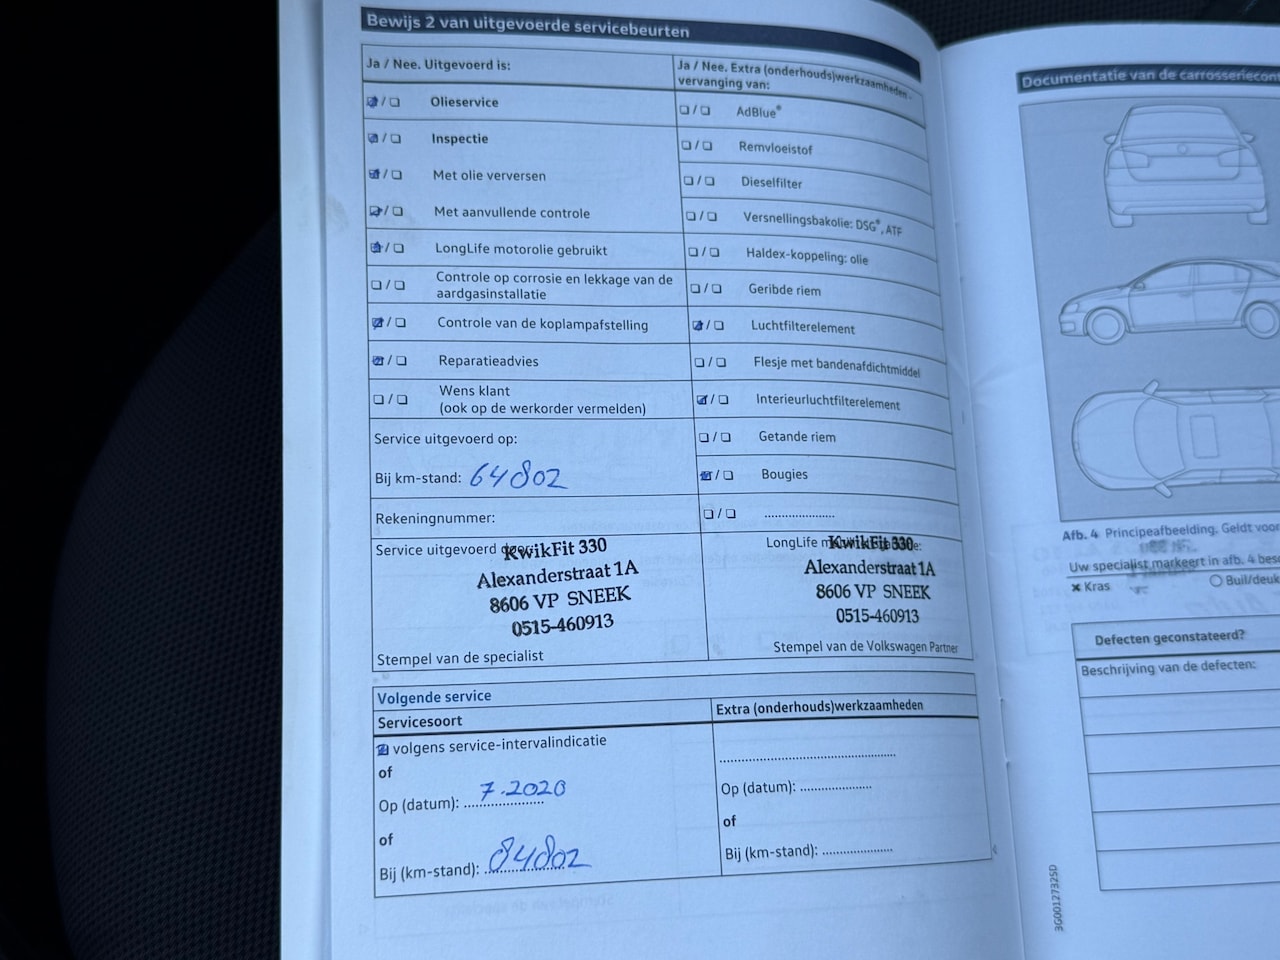 Bewijs 2 van uitgevoerde servicebeurten
Ja / Nee. Uitgevoerd is:
Olieservice
Inspectie
Met olie verversen
Met aanvullende controle
LongLife motorolie gebruikt
Controle op corrosie en lekkage van de
aardgasinstallatie
Controle van de koplampafstelling
Reparatieadvies
Wens klant
(ook op de werkorder vermelden)
Service uitgevoerd op:
Bij km-stand: 64802
Rekeningnummer:
Service uitgevoerd door:
KwikFit 330
Alexanderstraat 1A
8606 VP SNEEK
0515-460913
Stempel van de specialist
Ja / Nee. Extra (onderhouds)werkzaamheden -
vervanging van:
AdBlue®
Remvloeistof
Dieselfilter
Versnellingsbakolie: DSG®, ATF
Haldex-koppeling: olie
Geribde riem
Luchtfilterelement
Flesje met bandenafdichtmiddel
Interieurluchtfilterelement
Getande riem
Bougies
....................
LongLife
KwikFit 330
Alexanderstraat 1A
8606 VP SNEEK
0515-460913
Stempel van de Volkswagen Partner
Volgende service
Servicesoort
volgens service-intervalindicatie
of
Op (datum): 7.2020
of
Bij (km-stand): 84802
Extra (onderhouds)werkzaamheden
Op (datum): ....................
of
Bij (km-stand): ....................
Documentatie van de carrosseriecon
Afb. 4 Principeafbeelding. Geldt voor
Uw specialist markeert in afb. 4 besc
Kras
Buil/deuk
Defecten geconstateerd?
Beschrijving van de defecten:
3G0012732SD